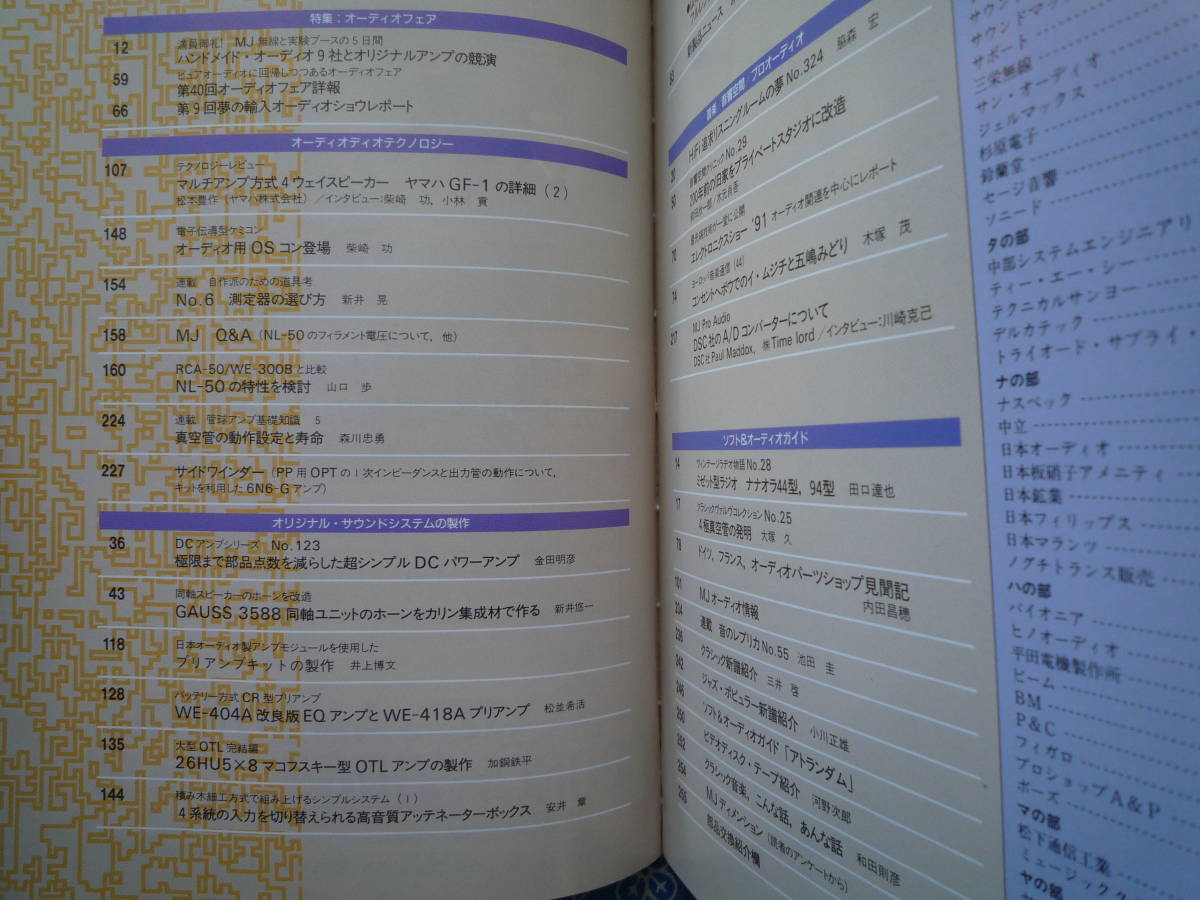 特集：オーディオフェア
12
満員御礼! MJ無線と実験ブースの5日間
ハンドメイド・オーディオ9社とオリジナルアンプの競演
59
ピュアオーディオに回帰しつつあるオーディオフェア
第40回オーディオフェア詳報
66
第9回夢の輸入オーディオショウレポート
オーディオディオテクノロジー
107
テクノロジーレビュー
マルチアンプ方式4ウェイスピーカー ヤマハGF-1の詳細(2)
松本豊作(ヤマハ株式会社)/インタビュー:柴崎 功, 小林 貢
148
電子伝導型ケミコン
オーディオ用OSコン登場 柴崎 功
154
連載 自作派のための道具考
No.6 測定器の選び方 新井 晃
158
MJ Q&A(NL-50のフィラメント電圧について, 他)
160
RCA-50/WE-300Bと比較
NL-50の特性を検討 山口 歩
224
連載 管球アンプ基礎知識 5
真空管の動作設定と寿命 森川忠勇
227
サイドワインダー(PP用OPTの1次インピーダンスと出力管の動作について,
キットを利用した6N6-Gアンプ)
オリジナル・サウンドシステムの製作
36
DCアンプシリーズ No.123
極限まで部品点数を減らした超シンプルDCパワーアンプ 金田明彦
43
同軸スピーカーのホーンを改造
GAUSS 3588同軸ユニットのホーンをカリン集成材で作る 新井悠一
118
日本オーディオ製アンプモジュールを使用した
プリアンプキットの製作 井上博文
128
バッテリー方式CR型プリアンプ
WE-404A改良版EQアンプとWE-418Aプリアンプ 松並希活
135
大型OTL完結編
26HU5×8マコフスキー型OTLアンプの製作 加銅鉄平
144
積み木細工方式で組み上げるシンプルシステム(1)
4系統の入力を切り替えられる高音質アッテネーターボックス 安井 章
新製品ニュース
音楽 音響空間 プロオーディオ
HiFi追求リスニングルームの夢No.324 脇森 宏
音響空間クリニックNo.29
200年前の旧家をプライベートスタジオに改造
70
最先端技術が一堂に公開
エレクトロニクスショー '91 オーディオ関連を中心にレポート
74
ヨーロッパ音楽通信(44)
コンセントヘボウでのイ・ムジチと五嶋みどり 木塚 茂
217
MJ Pro Audio
DSC社のA/Dコンバーターについて
DSC社Paul Maddox, ㈱Time lord/インタビュー:川崎克己
ソフト&オーディオガイド
14
ヴィンテージラヂオ物語No.28
ミゼット型ラジオ ナナオラ44型, 94型 田口達也
17
クラシックヴァルヴコレクションNo.25
4極真空管の発明 大塚 久
78
ドイツ, フランス, オーディオパーツショップ見聞記
内田昌穂
101
MJオーディオ情報
234
連載 音のレプリカNo.55 池田 圭
クラシック新譜紹介 三井 啓
242
ジャズ・ポピュラー新譜紹介 小川正雄
246
ソフト&オーディオガイド「アトランダム」
250
ビデオディスク・テープ紹介 河野次郎
252
クラシック音楽, こんな話, あんな話 和田則彦
254
MJディメンション(読者のアンケートから)
256
部品交換紹介欄
サウンドマッ
サポート
三栄無線
サン・オーディオ
ジェルマックス
杉原電子
鈴蘭堂
セージ音響
ソニード
タの部
中部システムエンジニアリ
ティー・エー・シー
テクニカルサンヨー
デルカテック
トライオード・サプライ・
ナの部
ナスペック
中立
日本オーディオ
日本板硝子アメニティ
日本鉱業
日本フィリップス
日本マランツ
ノグチトランス販売
ハの部
パイオニア
ヒノオーディオ
平田電機製作所
ビーム
BM
P&C
フィガロ
プロショップA&P
ボーズ
マの部
松下通信工業
ミュージック
ヤの部